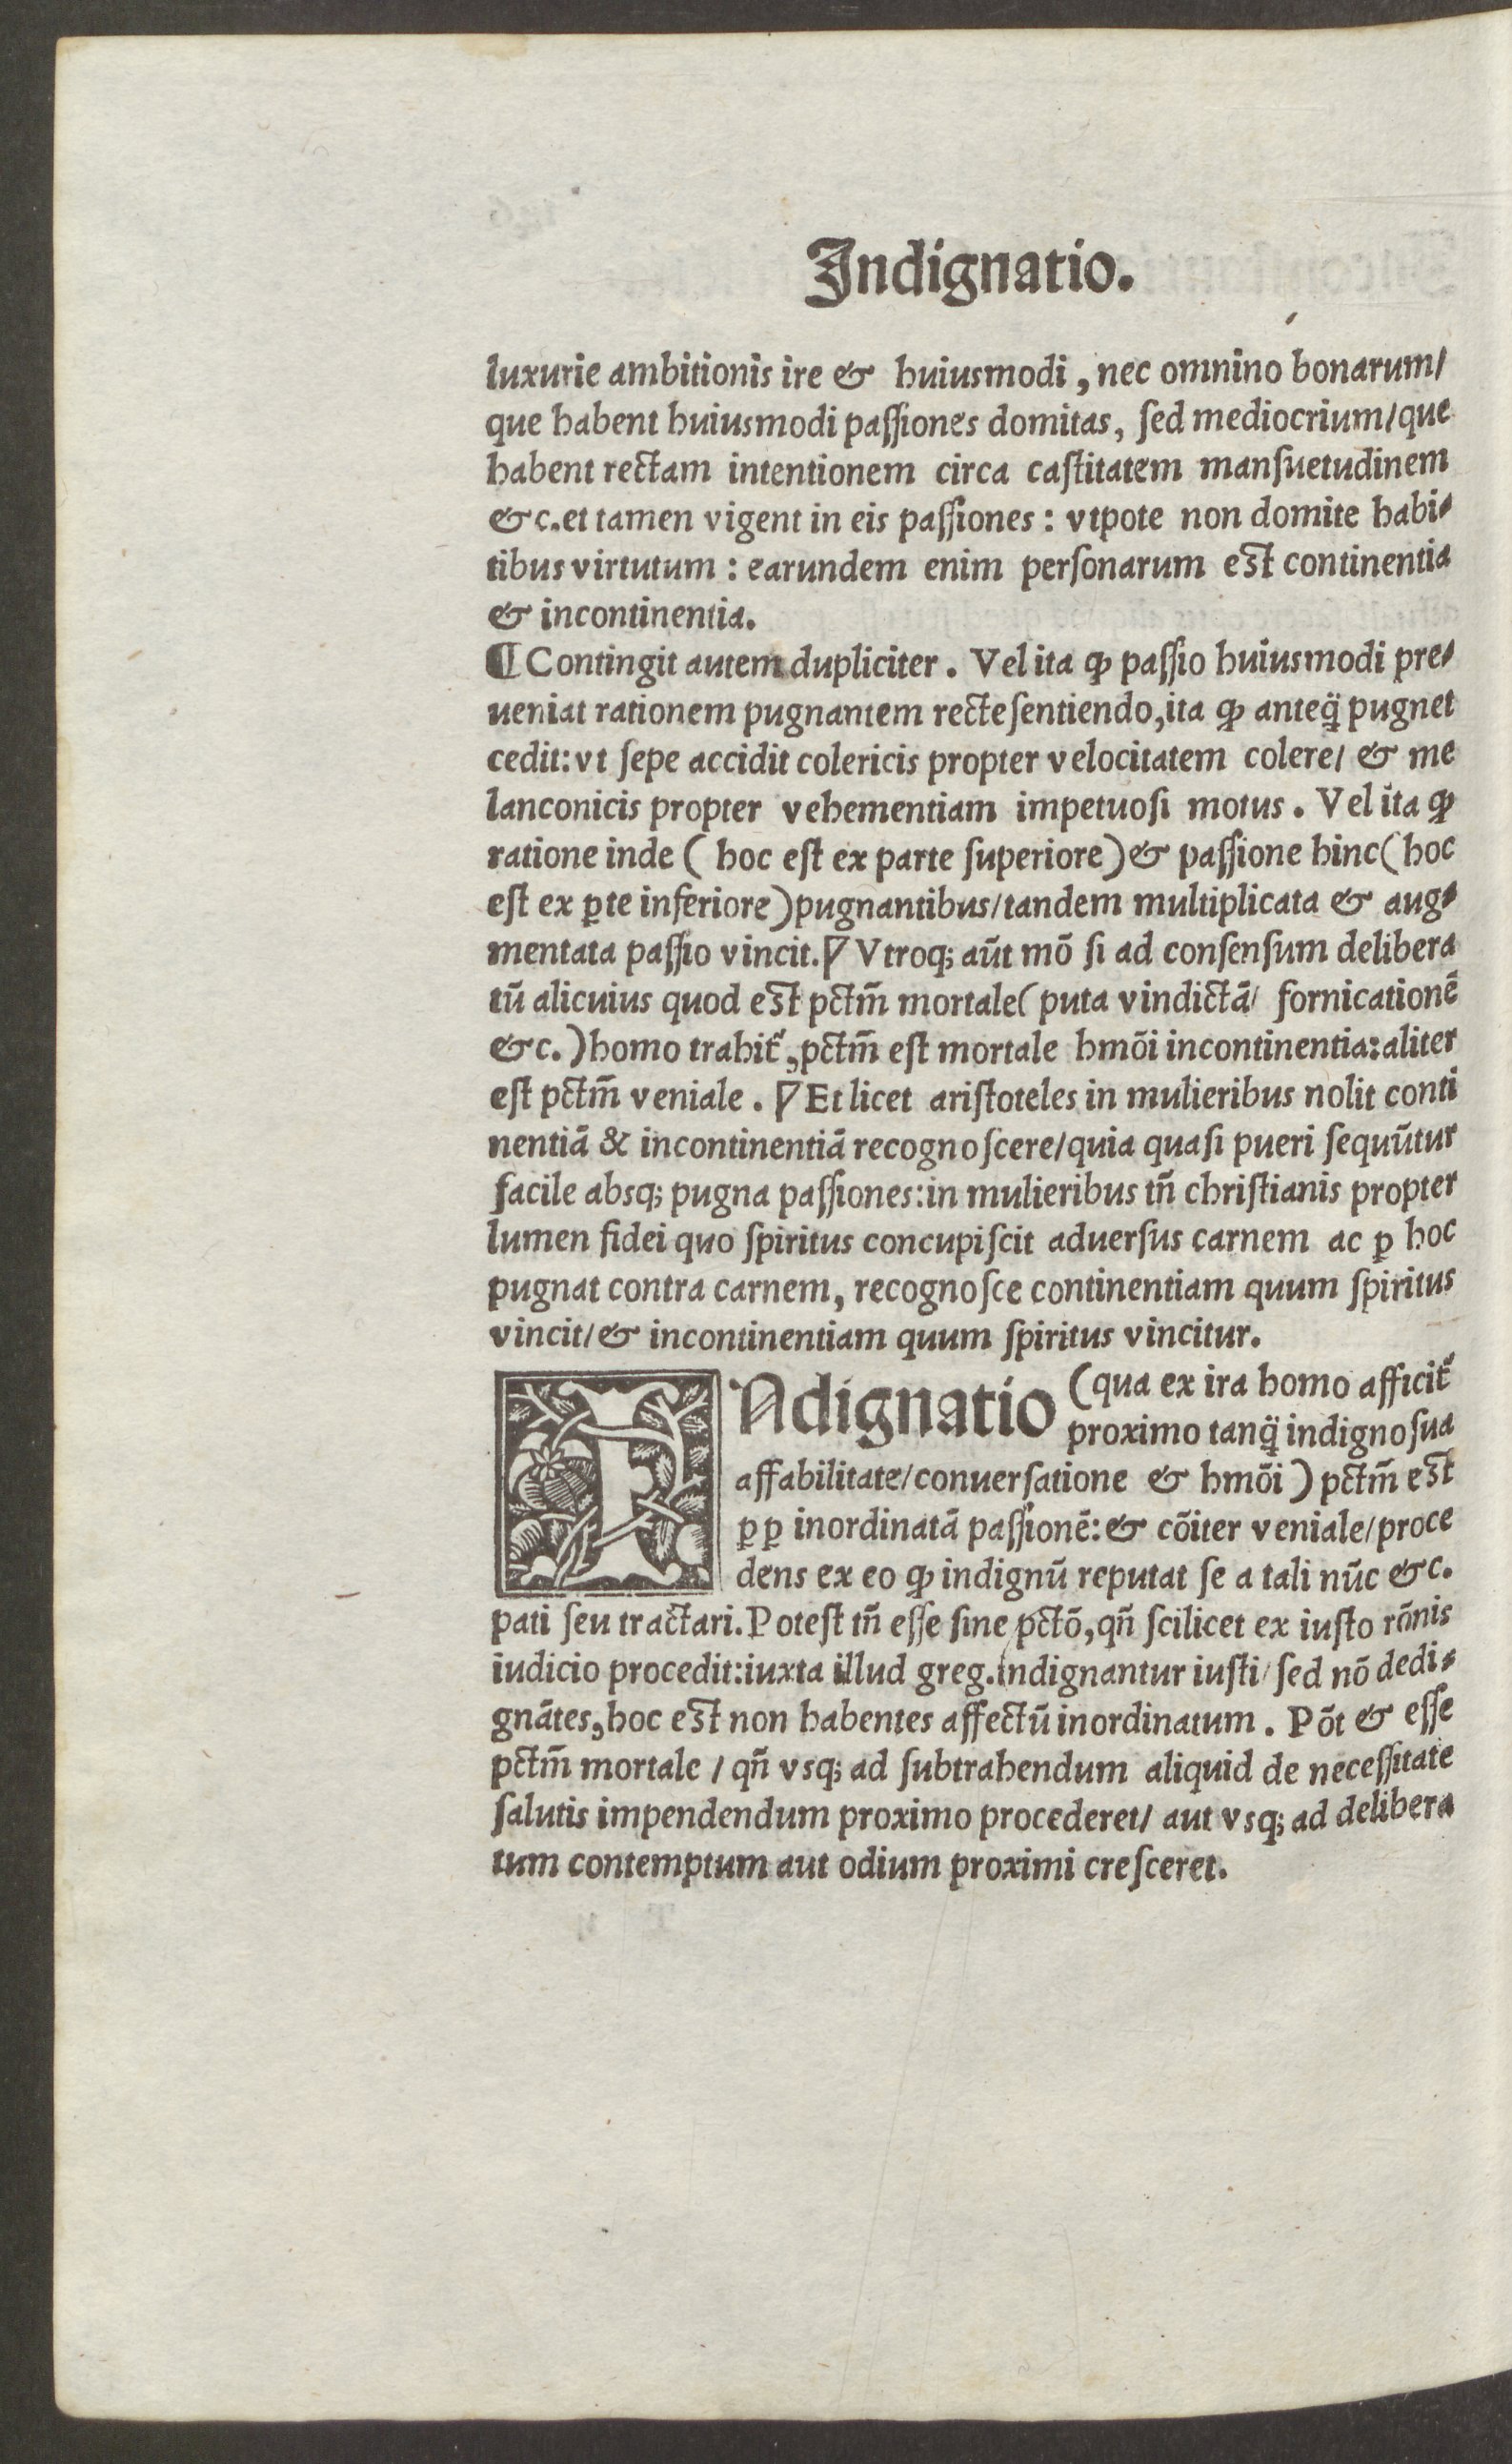 Indignatio.
luxurie ambitionis ire & huiusmodi, nec omnino bonarum/
que habent huiusmodi passiones domitas, sed mediocrium/que
habent rectam intentionem circa castitatem mansuetudinem
&c. et tamen vigent in eis passiones: vtpote non domite habi-
tibus virtutum: earundem enim personarum est continentia
& incontinentia.
¶ Contingit autem dupliciter. Vel ita ꝙ passio huiusmodi pre-
ueniat rationem pugnantem recte sentiendo, ita ꝙ anteq̃ pugnet
cedit: vt sepe accidit colericis propter velocitatem colere/ & me
lanconicis propter vehementiam impetuosi motus. Vel ita ꝙ
ratione inde (hoc est ex parte superiore) & passione hinc (hoc
est ex ꝑte inferiore) pugnantibus/tandem multiplicata & aug-
mentata passio vincit. Vtroq; aũt mõ si ad consensum delibera
tũ alicuius quod est pctm̃ mortale (puta vindictã/ fornicationẽ
&c.) homo trahit᷑, pctm̃ est mortale hmõi incontinentia: aliter
est pctm̃ veniale. Et licet aristoteles in mulieribus nolit conti
nentiã & incontinentiã recognoscere/quia quasi pueri sequũtur
facile absq; pugna passiones: in mulieribus tñ christianis propter
lumen fidei quo spiritus concupiscit aduersus carnem ac ꝑ hoc
pugnat contra carnem, recognosce continentiam quum spiritus
vincit/& incontinentiam quum spiritus vincitur.
INdignatio (qua ex ira homo afficit᷑
proximo tanq̃ indigno sua
affabilitate/conuersatione & hmõi) pctm̃ est
ꝑꝑ inordinatã passionẽ: & cõiter veniale/proce
dens ex eo ꝙ indignũ reputat se a tali nũc &c.
pati seu tractari. Potest tñ esse sine pctõ, qñ scilicet ex iusto rõnis
iudicio procedit: iuxta illud greg. indignantur iusti/ sed nõ dedi-
gnãtes, hoc est non habentes affectũ inordinatum. Põt & esse
pctm̃ mortale / qñ vsq; ad subtrahendum aliquid de necessitate
salutis impendendum proximo procederet/ aut vsq; ad delibera
tum contemptum aut odium proximi cresceret.